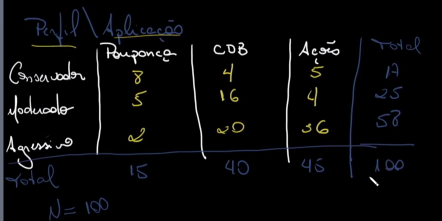 Perfil \ Aplicação
Poupança CDB Ações Total
Conservador 8 4 5 17
Moderado 5 16 4 25
Agressivo 2 20 36 58
Total 15 40 45 100
N = 100